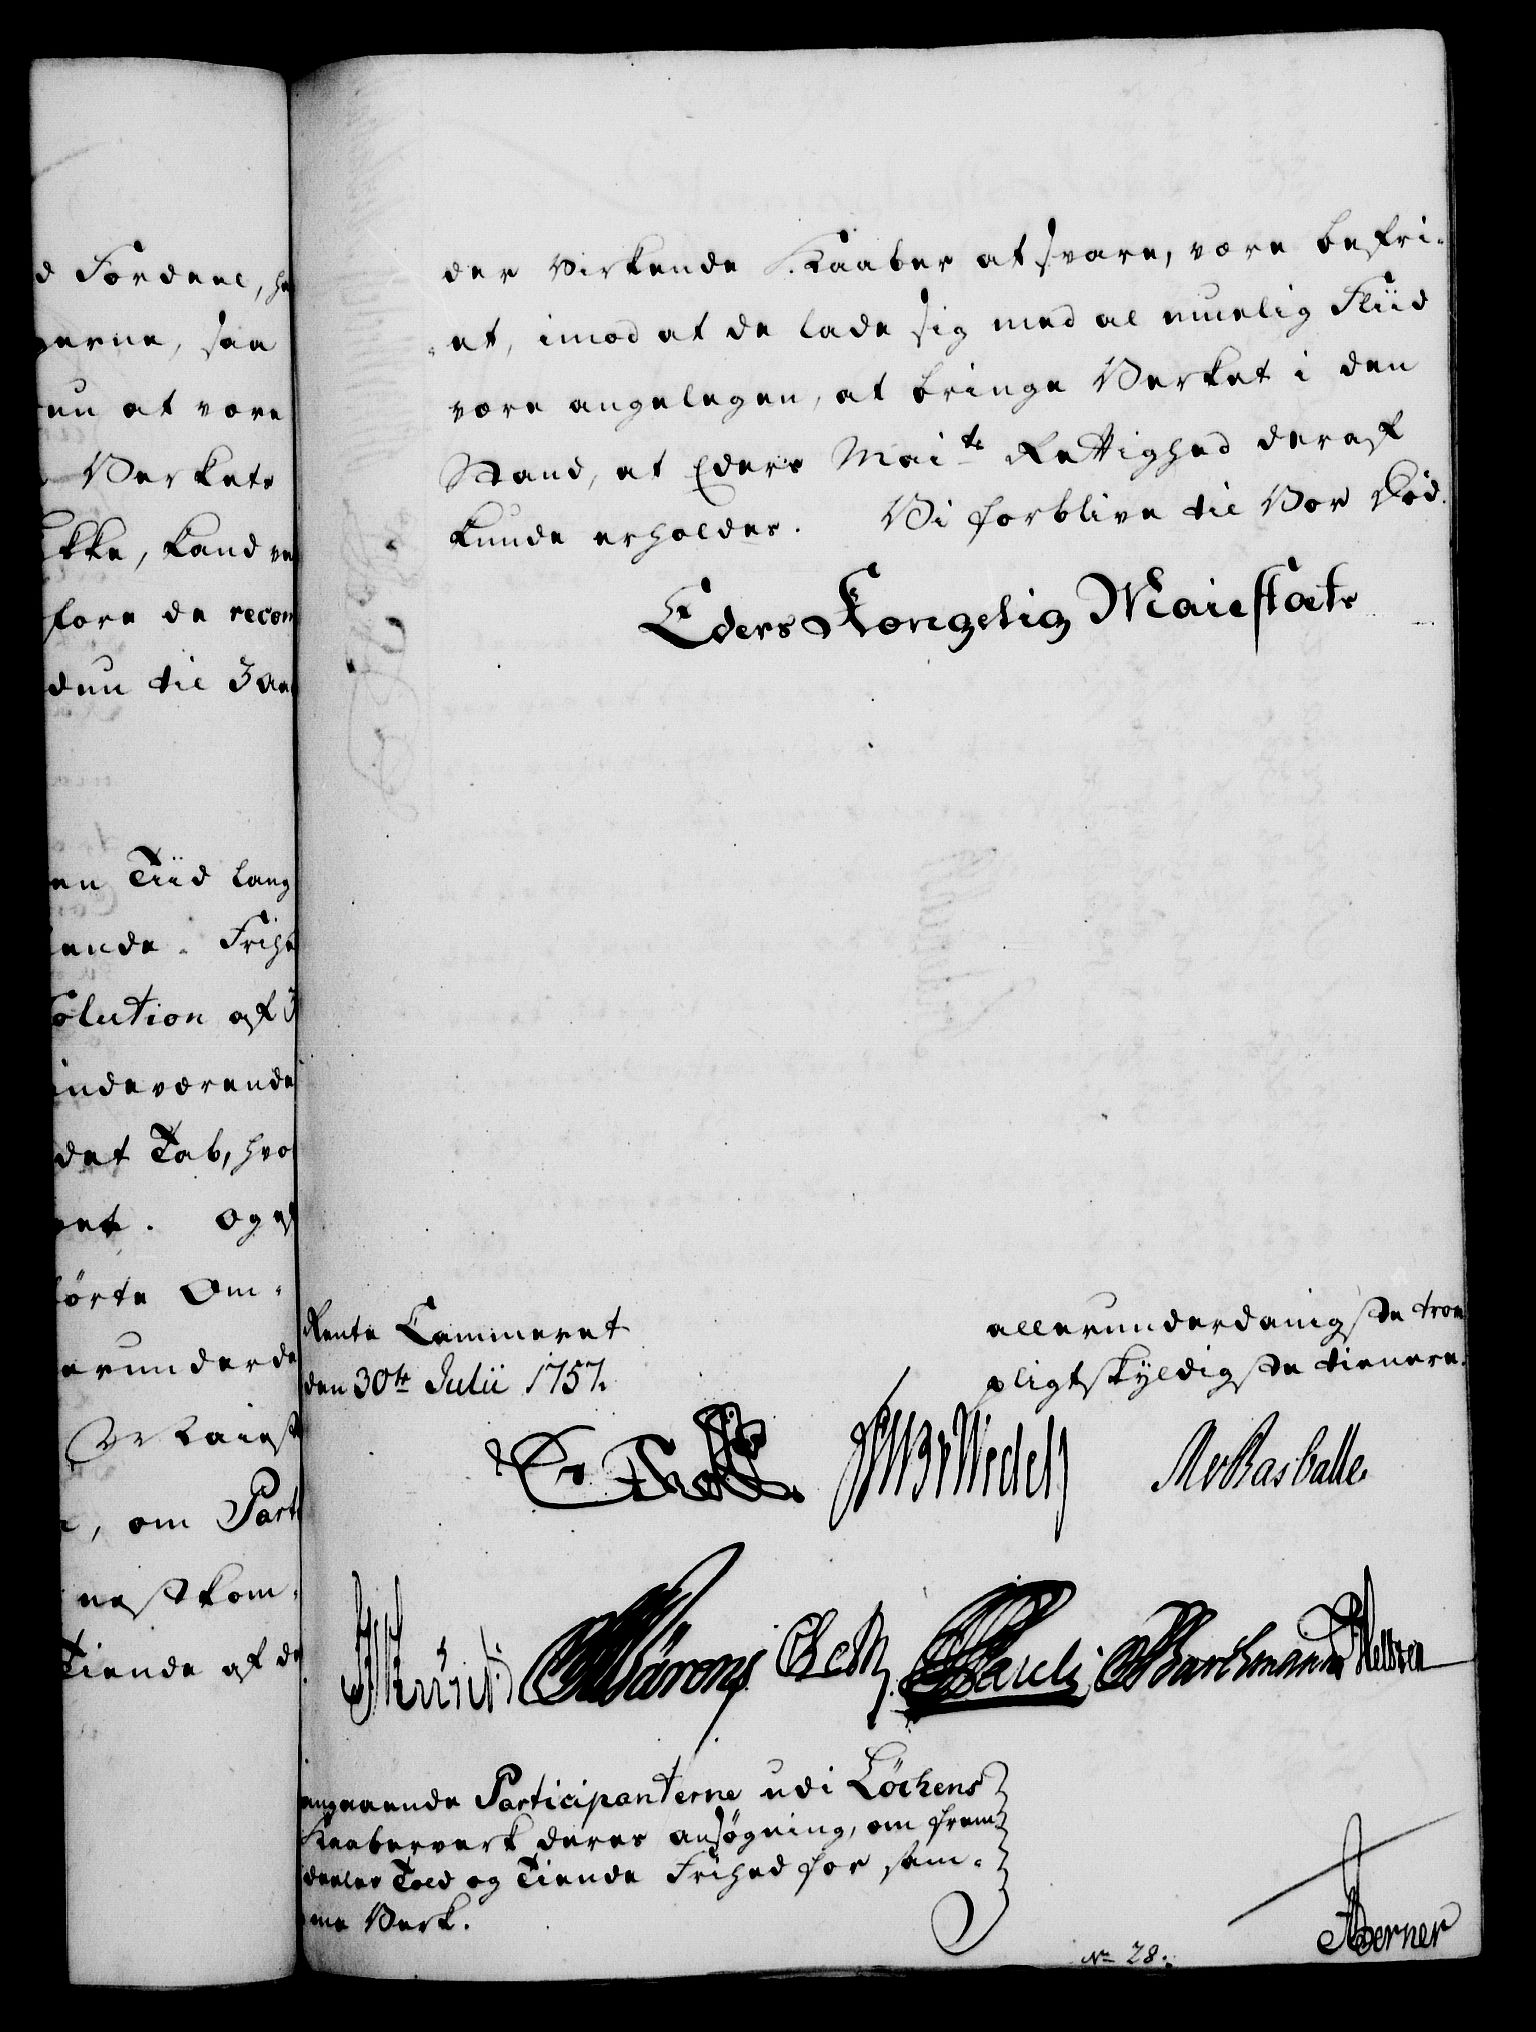 d Fordeel, he
gerne, saa
en at være
Verkets
ikke, kand ve
fore de recom
den til 3 aa
en Tiid lang
iende-Frihe
solution af 3
indeværende
det Tab, hvo
et. Og as
førte Om-
erunderda
om Part
næstkom-
Tiende af de
der virkende Kaaber at svare, være befri-
-et, imod at de lade sig med al muelig Fliid
være angelegen, at bringe Verket i den
Stand, at Eders Maits Rettighed deraf
kunde erholdes. Vi forblive til Vor Død.
Eders Kongelig Maiestæts
Rente Cammeret
den 30te Julii 1757.
allerunderdanigste troe
pligtskyldigste tienere.
O Thott
Wedell
Rasballe
Pauli
Barchmann
angaaende Participanterne udi Løchens
Kaaberverk deres ansøgning, om frem-
deeles Told og Tiende Frihed for sam-
me Verk.
No 28.
Berner